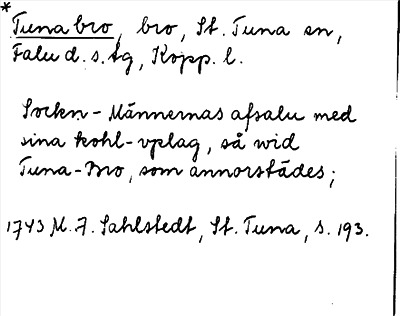 *
Tuna bro, bro, St. Tuna sn,
Falu d. s. tg, Kopp. l.
Sockn-Männernas afsalu med
sina kohl-vplag, så wid
Tuna-Bro, som annorstädes;
1743 M. A. Sahlstedt, St. Tuna, s. 193.